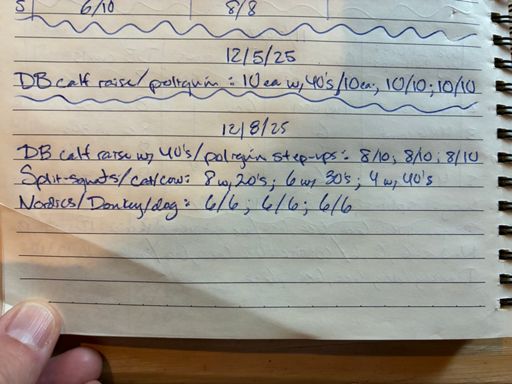 5 6/10 8/8
12/5/25
DB calf raise/poliquin: 10ea w/40's/10ea; 10/10; 10/10
12/8/25
DB calf raise w/ 40's/poliquin step-ups: 8/10; 8/10; 8/10
Split-squats/cat/cow: 8 w/20's; 6 w/ 30's; 4 w/ 40's
Nordics/Donkey/dog: 6/6; 6/6; 6/6